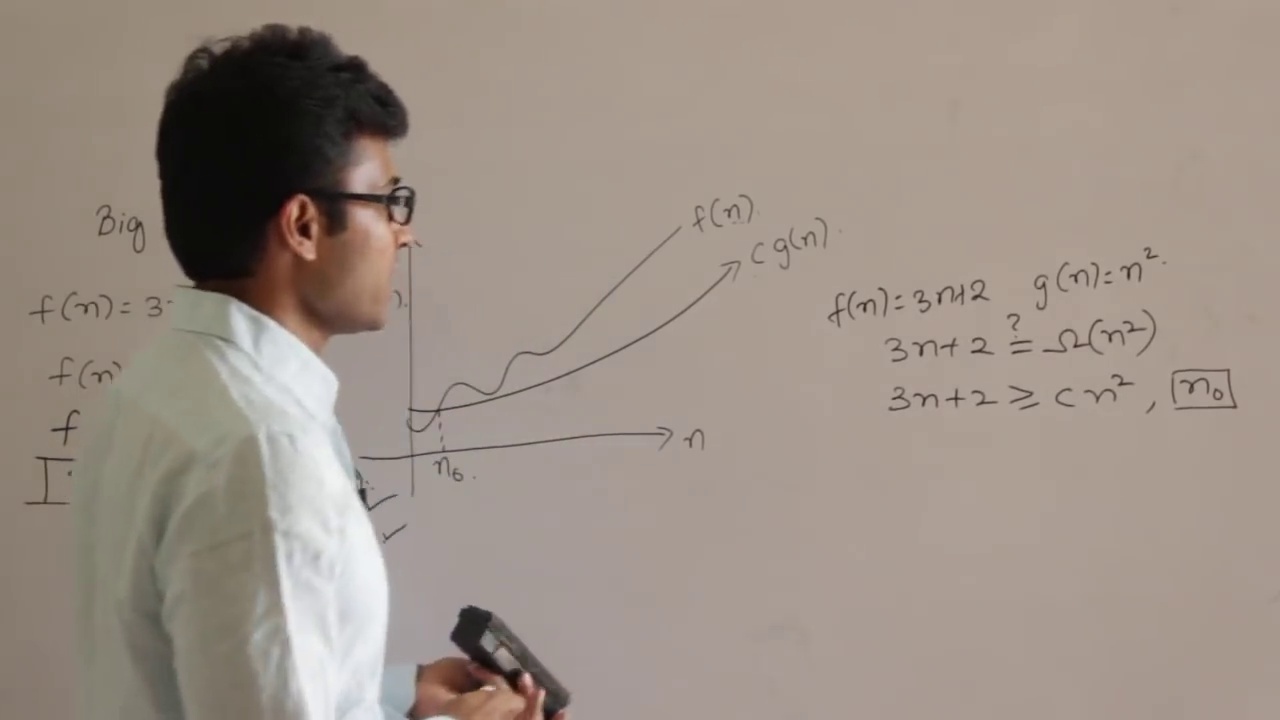 Big
f(n) = 3
f(n)
f
f(n)
c g(n)
n
n₀
f(n) = 3n+2 g(n) = n²
3n+2 ≟ Ω(n²)
3n+2 ≥ c n² , n₀